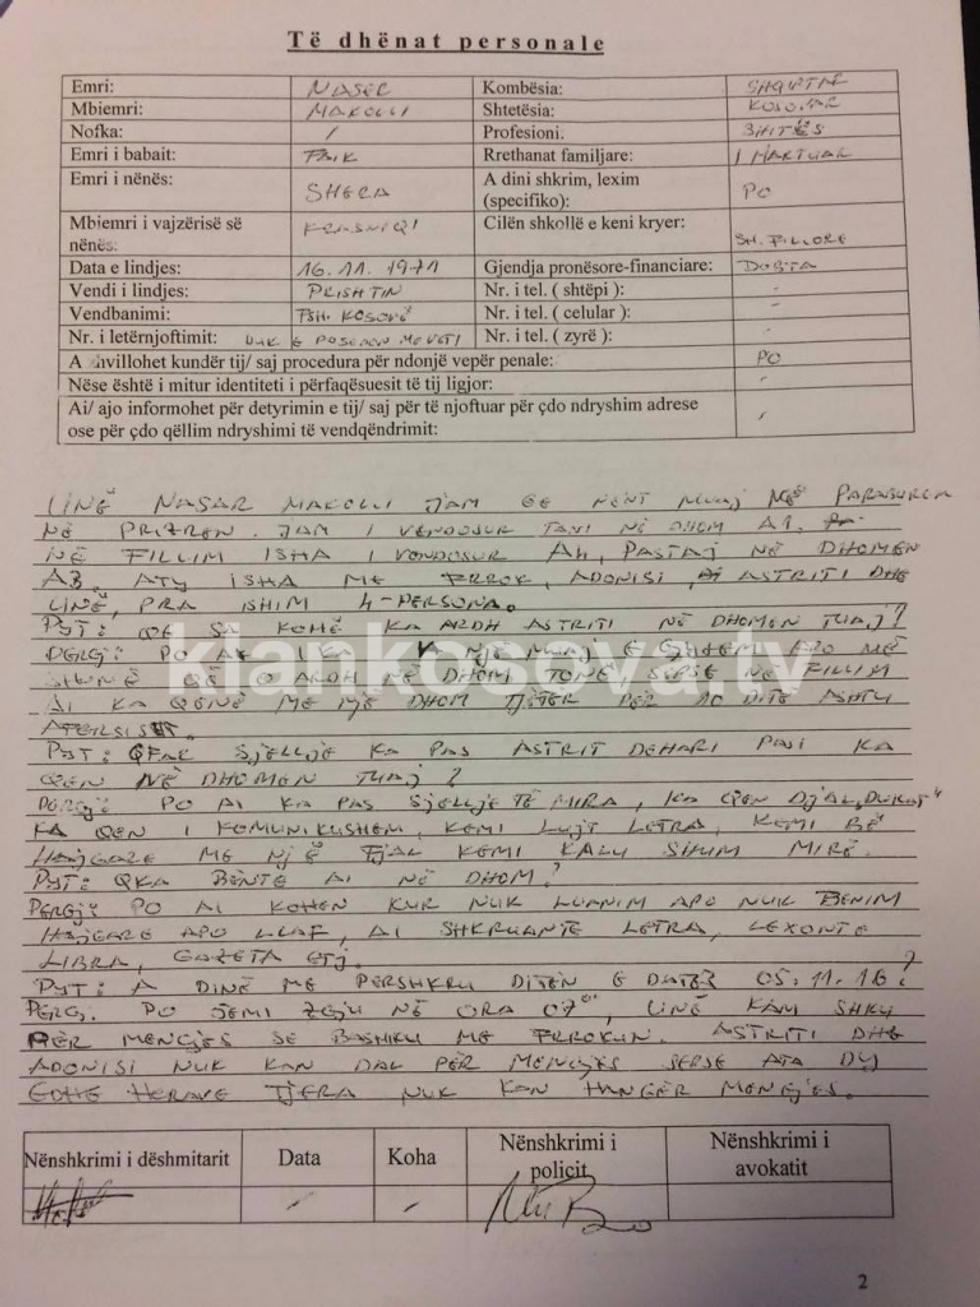 Të dhënat personale
Emri: NASER Kombësia: SHQIPTAR
Mbiemri: MAKOLLI Shtetësia: KOSOVAR
Nofka: / Profesioni:
Emri i babait: FAIK Rrethanat familjare: I MARTUAR
Emri i nënës: A dini shkrim, lexim (specifiko): PO
Mbiemri i vajzërisë së nënës: KRASNIQI Cilën shkollë e keni kryer: SH. FILLORE
Data e lindjes: 16.11.1971 Gjendja pronësore-financiare: DOBTA
Vendi i lindjes: PRISHTIN Nr. i tel. ( shtëpi ): -
Vendbanimi: FSH. KOSOVË Nr. i tel. ( celular ): -
Nr. i letërnjoftimit: NUK E POSEDON ME VETI Nr. i tel. ( zyrë ): -
A zhvillohet kundër tij/ saj procedura për ndonjë vepër penale: PO
Nëse është i mitur identiteti i përfaqësuesit të tij ligjor: -
Ai/ ajo informohet për detyrimin e tij/ saj për të njoftuar për çdo ndryshim adrese
ose për çdo qëllim ndryshimi të vendqëndrimit: /
UNË NASAR MAKOLLI JAM QE NENT MUAJ NË PARABURGM
NË PRIZREN. JAM I VENDOSUR TANI NË DHOM A1.
NË FILLIM ISHA I VENDOSUR A4, PASTAJ NË DHOMEN
A3. ATY ISHA ME FRROK, ADONISI, ASTRITI DHE
UNË, PRA ISHIM 4-PERSONA.
PYT: QE SA KOHË KA ARDH ASTRITI NË DHOMEN TUAJ?
PERGJ: PO AI KA NJË MUAJ E GJYSEM APO MË
SHUMË QË O ARDH NË DHOM TONË SEPSE NË FILLIM
AI KA QENË ME NJË DHOM TJETER PËR 10 DITË ASHTU
AFERSISHT.
PYT: QFAR SJELLJE KA PAS ASTRIT DEHARI PASI KA
QEN NË DHOMEN TUAJ?
PERGJ: PO AI KA PAS SJELLJE TË MIRA, KA QEN DJAL „DUKAT"
KA QEN I KOMUNIKUSHEM, KEMI LUJT LETRA, KEMI BË
HAJGARE ME NJË FJAL KEMI KALU SHUM MIRË.
PYT: QKA BËNTE AI NË DHOM?
PERGJ: PO AI KOHEN KUR NUK LUANIM APO NUK BENIM
HAJGARE APO LLAF, AI SHKRUANTE LETRA, LEXONTE
LIBRA, GAZETA ETJ.
PYT: A DINË ME PERSHKRU DITËN E DATËS 05.11.16?
PËRGJ. PO JEMI ZGJU NË ORA 07⁰⁰, UNË KAM SHKU
PËR MENGJES SE BASHKU ME FRROKUN. ASTRITI DHE
ADONISI NUK KAN DAL PËR MENGJES SEPSE ATA DY
EDHE HERAVE TJERA NUK KAN HANGËR MENGJES.
Nënshkrimi i dëshmitarit Data Koha Nënshkrimi i policit Nënshkrimi i avokatit
/ /
2
klankosova.tv